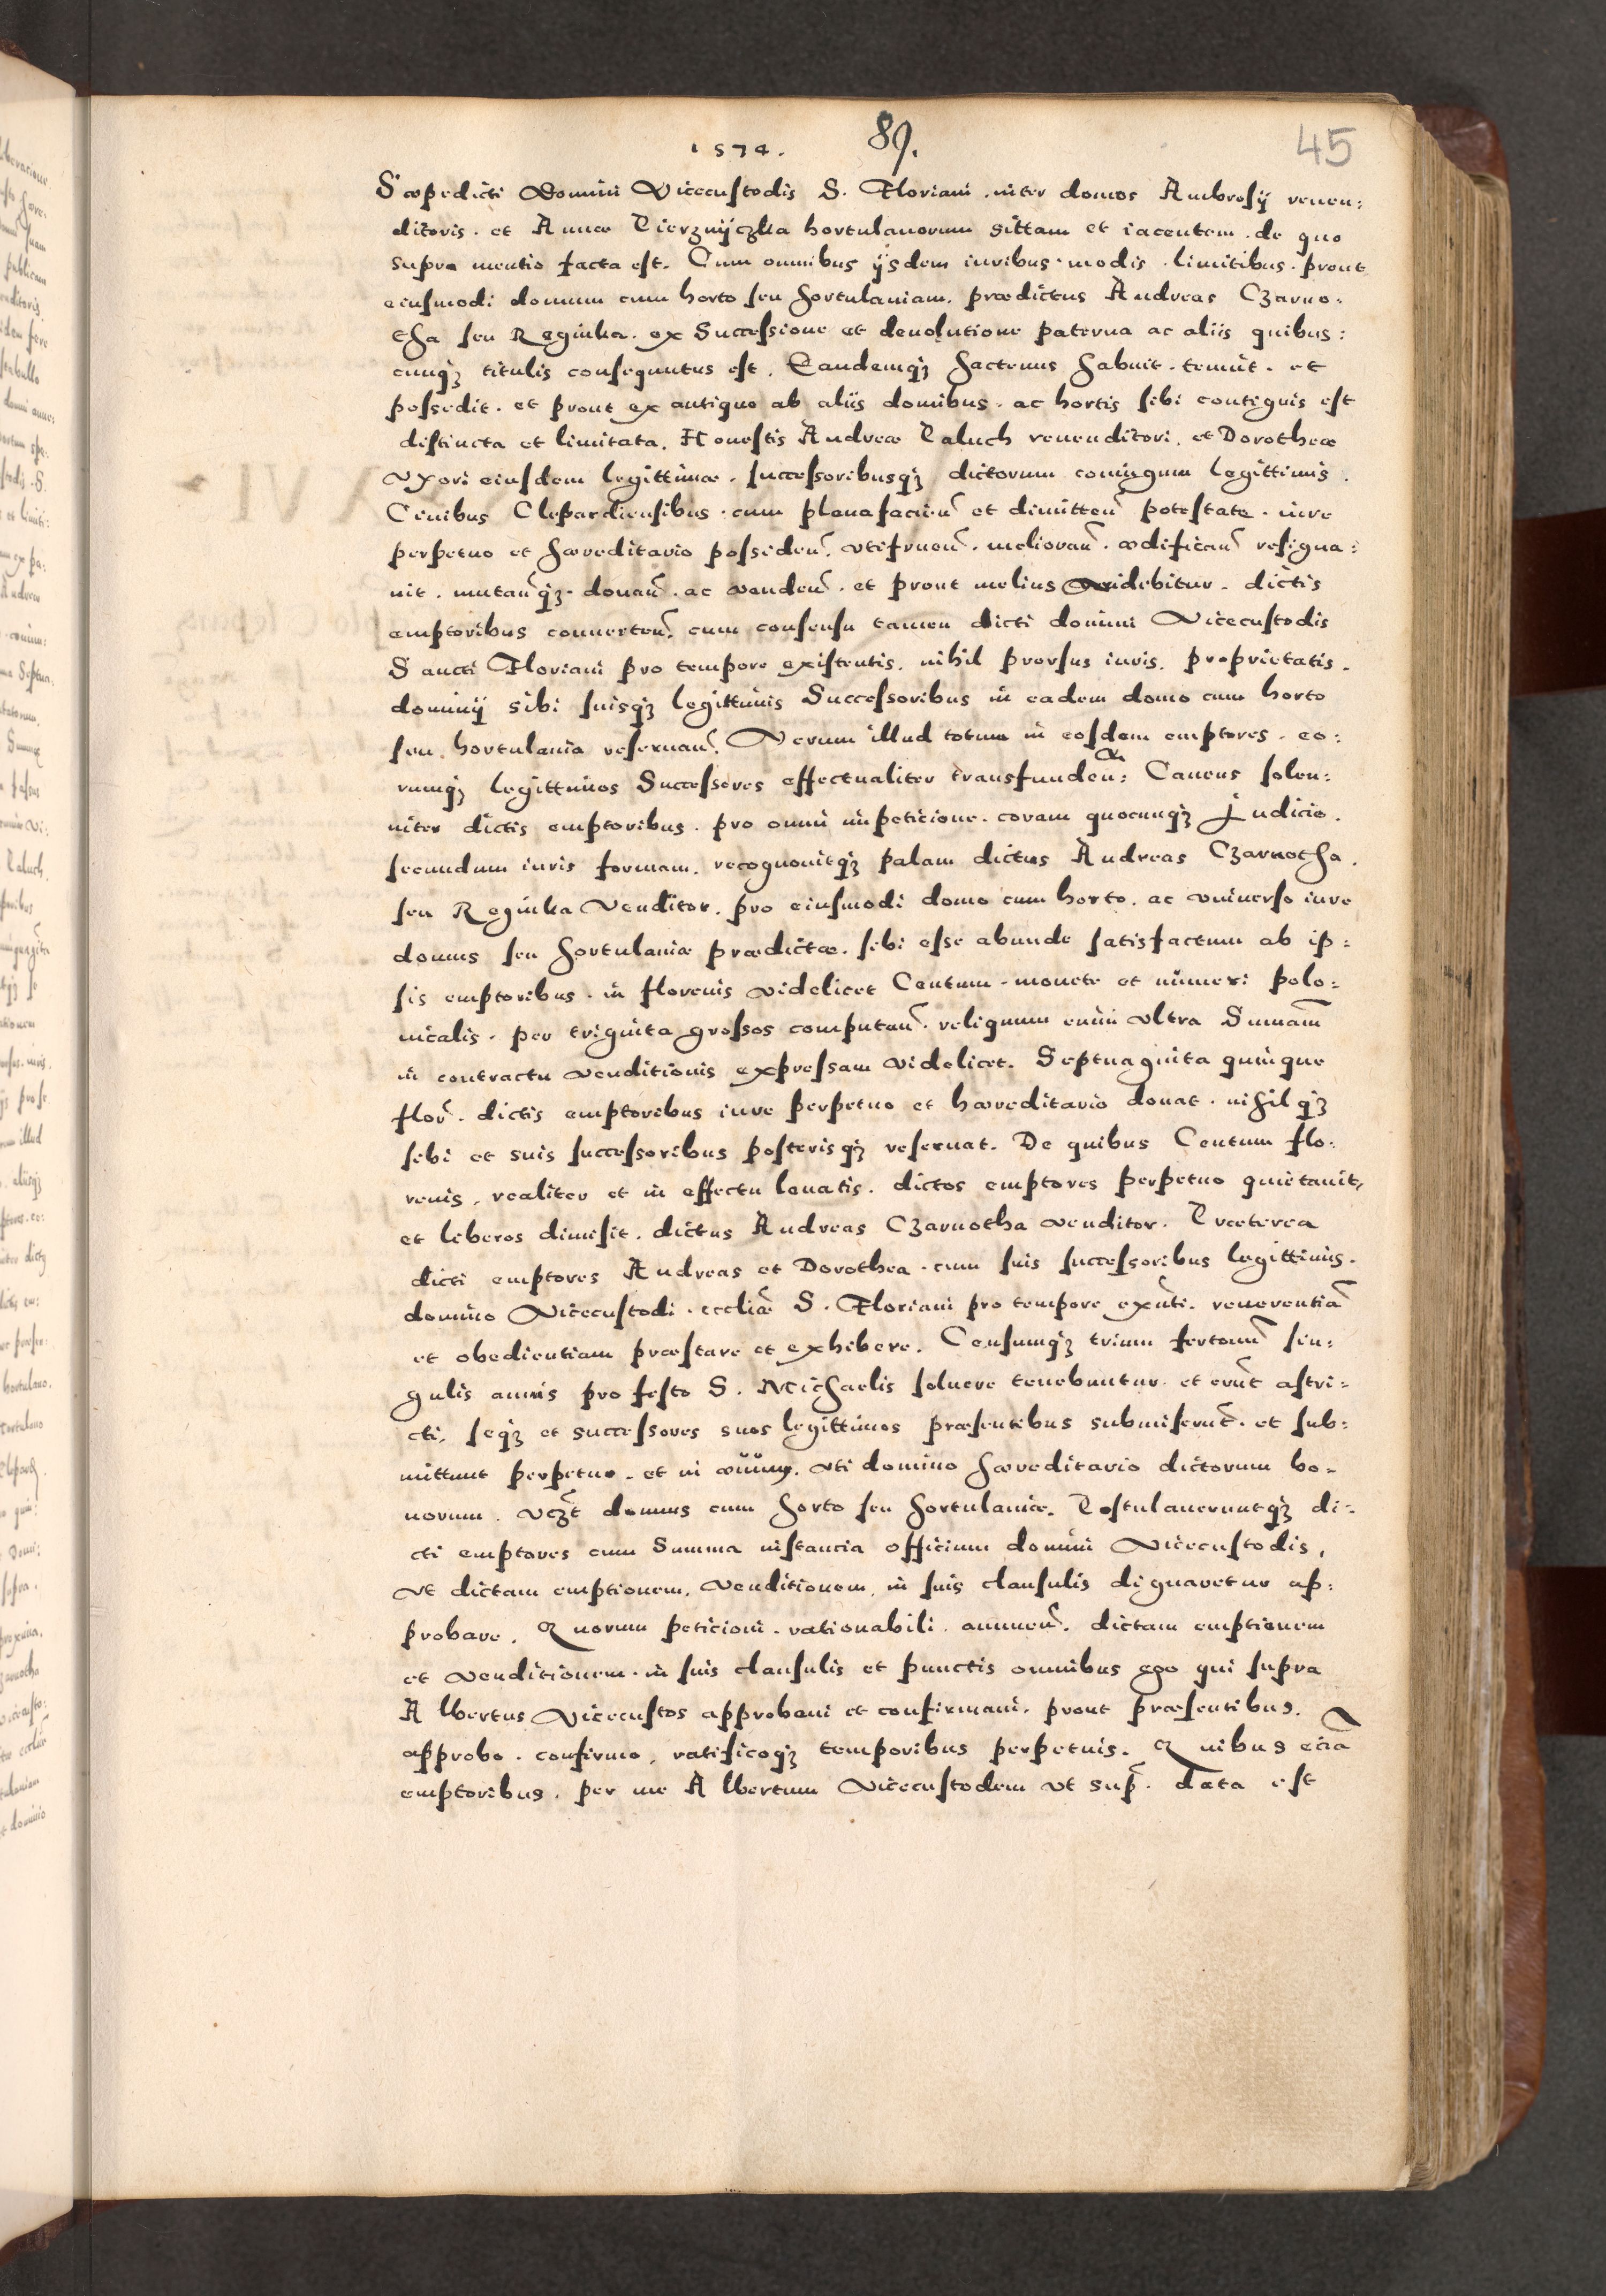 1574. 89. 45
Sæpedicti Domini Vicecustodis S. Floriani. inter domos Ambrosÿ venen:
ditoris. et Annæ Pierznÿczka hortulanorum sittam et iacentem. de quo
supra mentio facta est. Cum omnibus ÿsdem iuribus. modis. limitibus. prout
eiusmodi domum cum horto seu hortulaniam. prædictus Andreas Czarno:
tha seu Reginka. ex Successione et deuolutione paterna ac aliis quibus:
cunq̃ titulis consequutus est. Eandemq̃ hactenus habuit. tenuit. et
possedit. et prout ex antiquo ab aliis domibus. ac hortis sibi contiguis est
distincta et limitata. Honestis Andreæ Paluch venenditori. et Dorotheæ
vxori eiusdem legittimæ. successoribusq̃ dictorum coniugum legittimis.
Ciuibus Clepardiensibus. cum plena facien̄ et dimitten̄ potestate. iure
perpetuo et hæreditario possiden̄. vtifruen̄. melioran̄. ædifican̄ resigna:
uit. mutan̄q̃. donan̄. ac venden̄. et prout melius videbitur. dictis
emptoribus conuerten̄. cum consensu tamen dicti domini Vicecustodis
Sancti Floriani pro tempore existentis. nihil prorsus iuris. proprietatis.
dominÿ sibi suisq̃ legittimis Successoribus in eadem domo cum horto
seu hortulania reseruan̄. Verum illud totum in eosdem emptores. eo:
rumq̃ legittimos Successores effectualiter transfunden̄: Cauens solen:
niter dictis emptoribus. pro omni impeticione. coram quocunq̃ Judicio.
secundum iuris formam. recognouitq̃ palam dictus Andreas Czarnotha.
seu Reginka Venditor. pro eiusmodi domo cum horto. ac vniuerso iure
domus seu hortulaniæ prædictæ. sibi esse abunde satisfactum ab ip:
sis emptoribus. in florenis videlicet Centum. monete et numeri polo:
nicalis. per triginta grossos computan̄. reliquum enim vltra Sum̄am
in contractu venditionis expressam videlicet. Septuaginta quinque
flor̄. dictis emptoribus iure perpetuo et hæreditario donat. nihilq̃
sibi et suis successoribus posterisq̃ reseruat. De quibus Centum flo:
renis. realiter et in effectu leuatis. dictos emptores perpetuo quietauit,
et liberos dimisit. dictus Andreas Czarnotha venditor. Præterea
dicti emptores Andreas et Dorothea. cum suis successoribus legittimis.
domino Vicecustodi. eccliæ̃ S. Floriani pro tempore exn̄ti. reuerentiã
et obedientiam præstare et exhibere. Censumq̃ trium fertonũ sin:
gulis annis pro festo S. Michaelis soluere tenebuntur. et erũt astri:
cti, seq̃ et successores suos legittimos præsentibus submiserũt. et sub:
mittunt perpetuo. et in æuum. vti domino hæreditario dictorum bo:
norum. vcz̃t domus cum horto seu hortulaniæ. Postulaueruntq̃ di:
cti emptores cum Summa instancia officium domini Vicecustodis,
vt dictam emptionem. Venditionem. in suis clausulis dignaretur ap:
probare. Quorum peticioni. rationabili. annuen̄. dictam emptionem
et Venditionem. in suis clausulis et punctis omnibus ego qui supra
Albertus Vicecustos approbaui et confirmaui. prout præsentibus.
approbo. confirmo, ratificoq̃ temporibus perpetuis. Quibus eciã
emptoribus. per me Albertum Vicecustodem vt sup̄. data est